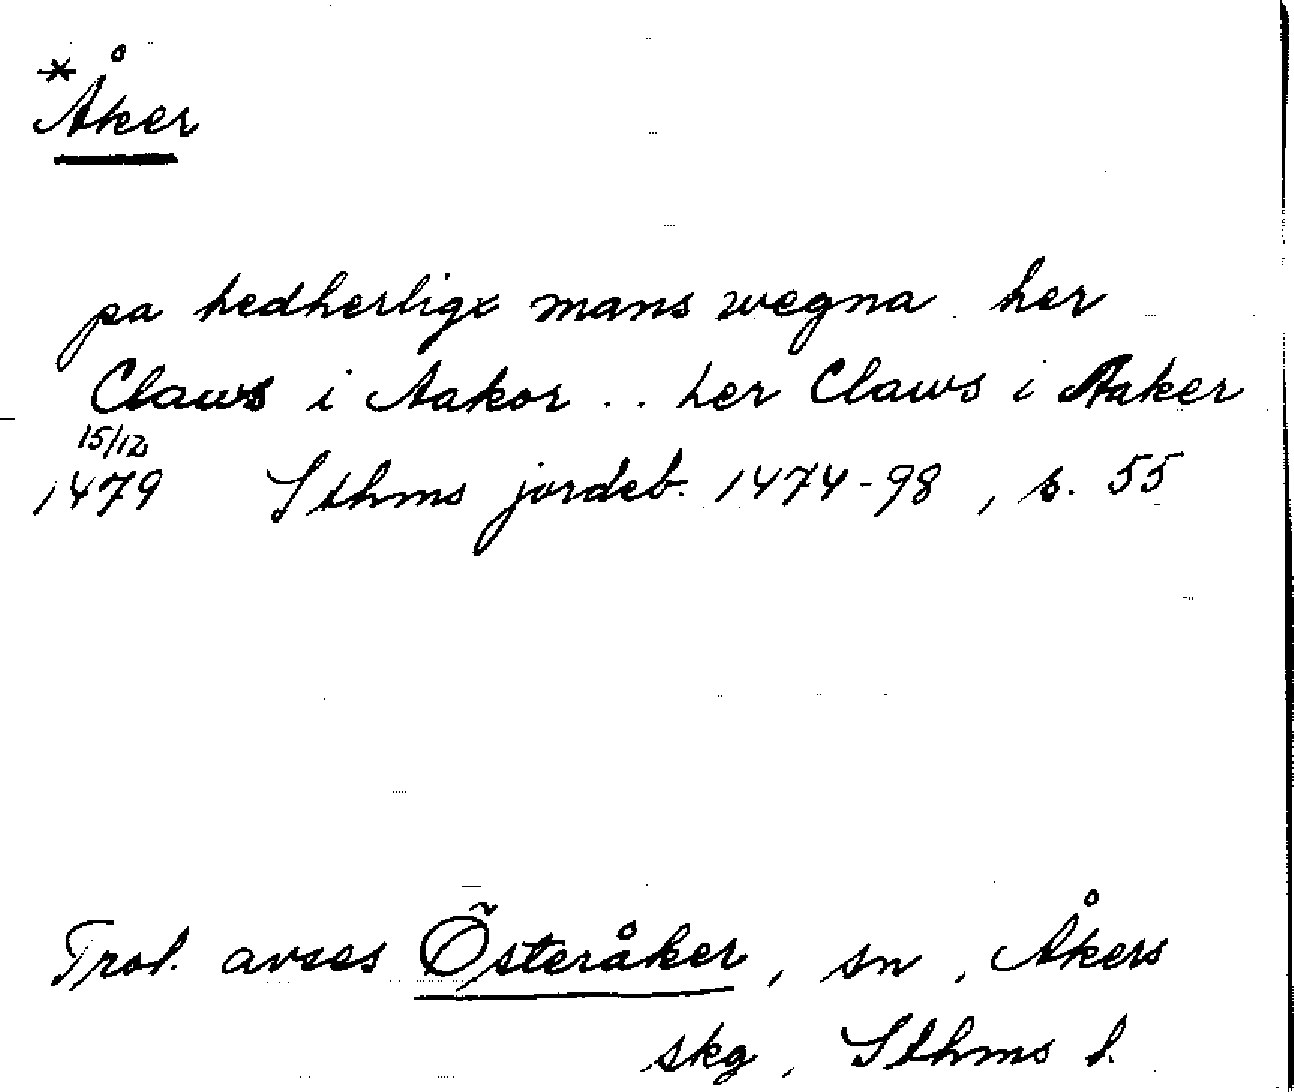 *Åker
pa hedherligx mans wegna her
Claws i Aakor .. her Claws i Aaker
15/12
1479 Sthms jordeb. 1474-98, s. 55
Trol. avses Österåker, sn, Åkers
skg, Sthms l.